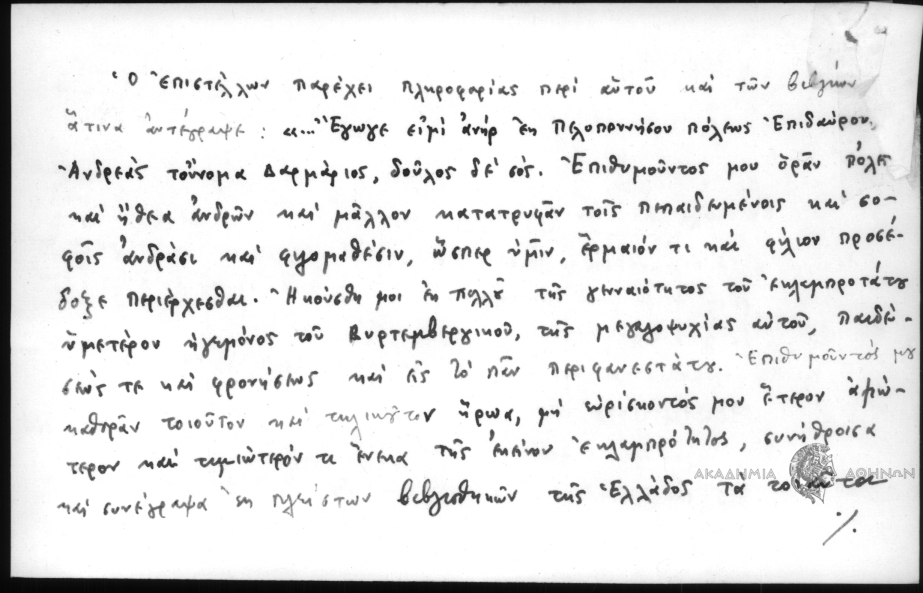 Ὁ Ἐπιστέλλων παρέχει πληροφορίας περὶ αὐτοῦ καὶ τῶν βιβλίων
ἅτινα ἀντέγραψε : «...Ἔγωγε εἰμὶ ἀνὴρ ἐκ Πελοποννήσου πόλεως Ἐπιδαύρου,
Ἀνδρέας τοὔνομα Δαρμάριος, δοῦλος δὲ σός. Ἐπιθυμοῦντος μου ὁρᾶν πόλεις
καὶ ἤθεα ἀνδρῶν καὶ μᾶλλον κατατρυφᾶν τοῖς πεπαιδευμένοις καὶ σο-
φοῖς ἀνδράσι καὶ φιλομαθέσιν, ὥσπερ ὑμῖν, ἕρμαιόν τι καὶ φίλιον προσέ-
δοξε περιέρχεσθαι. Ἠκούσθη μοι ἐκ πολλοῦ τῆς γενναιότητος τοῦ ἐκλαμπροτάτου
ὑμετέρου ἡγεμόνος τοῦ Βυρτεμβεργικοῦ, τῆς μεγαλοψυχίας αὐτοῦ, παιδεύ-
σεώς τε καὶ φρονήσεως καὶ εἰς τὸ πᾶν περιφανεστάτου. Ἐπιθυμοῦντός μου
καθορᾶν τοιοῦτον καὶ τηλικοῦτον ἥρωα, μὴ εὑρίσκοντός μου ἕτερον ἀξιώ-
τερον καὶ τιμιώτερόν τι ἕνεκα τῆς ἐκείνου ἐκλαμπρότητος, συνήθροισα
καὶ συνέγραψα ἐκ πλείστων βιβλιοθηκῶν τῆς Ἑλλάδος τὰ τοιαῦτα
./.
ΑΚΑΔΗΜΙΑ ΑΘΗΝΩΝ